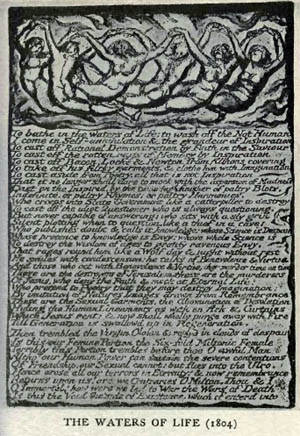 To bathe in the Waters of Life; to wash off the Not Human
I come in Self-annihilation & the grandeur of Inspiration
To cast off Rational Demonstration by Faith in the Saviour
To cast off the rotten rags of Memory by Inspiration
To cast off Bacon, Locke & Newton from Albions covering
To take off his filthy garments, & clothe him with Imagination
To cast aside from Poetry, all that is not Inspiration
That it no longer shall dare to mock with the aspersion of Madness
Cast on the Inspired, by the tame high finisher of paltry Blots,
Indefinite, or paltry Rhymes; or paltry Harmonies.
Who creeps into State Government like a catterpiller to destroy
To cast off the idiot Questioner who is always questioning,
But never capable of answering; who sits with a sly grin
Silent plotting when to question, like a thief in a cave;
Who publishes doubt & calls it knowledge; whose Science is Despair
Whose pretence to knowledge is Envy, whose whole Science is
To destroy the wisdom of ages to gratify ravenous Envy;
That rages round him like a Wolf day & night without rest
He smiles with condescension; he talks of Benevolence & Virtue
And those who act with Benevolence & Virtue, they murder time on time
These are the destroyers of Jerusalem, these are the murderers
Of Jesus, who deny the Faith & mock at Eternal Life:
Who pretend to Poetry that they may destroy Imagination;
By imitation of Natures Images drawn from Remembrance
These are the Sexual Garments, the Abomination of Desolation
Hiding the Human Lineaments as with an Ark & Curtains
Which Jesus rent: & now shall wholly purge away with Fire
Till Generation is swallowd up in Regeneration.
Then trembled the Virgin Ololon & replyd in clouds of despair
Is this our Femine Portion the Six-fold Miltonic Female
Terribly this Portion trembles before thee O awful Man
Altho' our Human Power can sustain the severe contentions
Of Friendship, our Sexual cannot: but flies into the Ulro.
Hence arose all our terrors in Eternity! & now remembrance
Returns upon us! are we Contraries O Milton, Thou & I
O Immortal! how were we led to War the Wars of Death
Is this the Void Outside of Existence, which if enterd into
THE WATERS OF LIFE (1804)